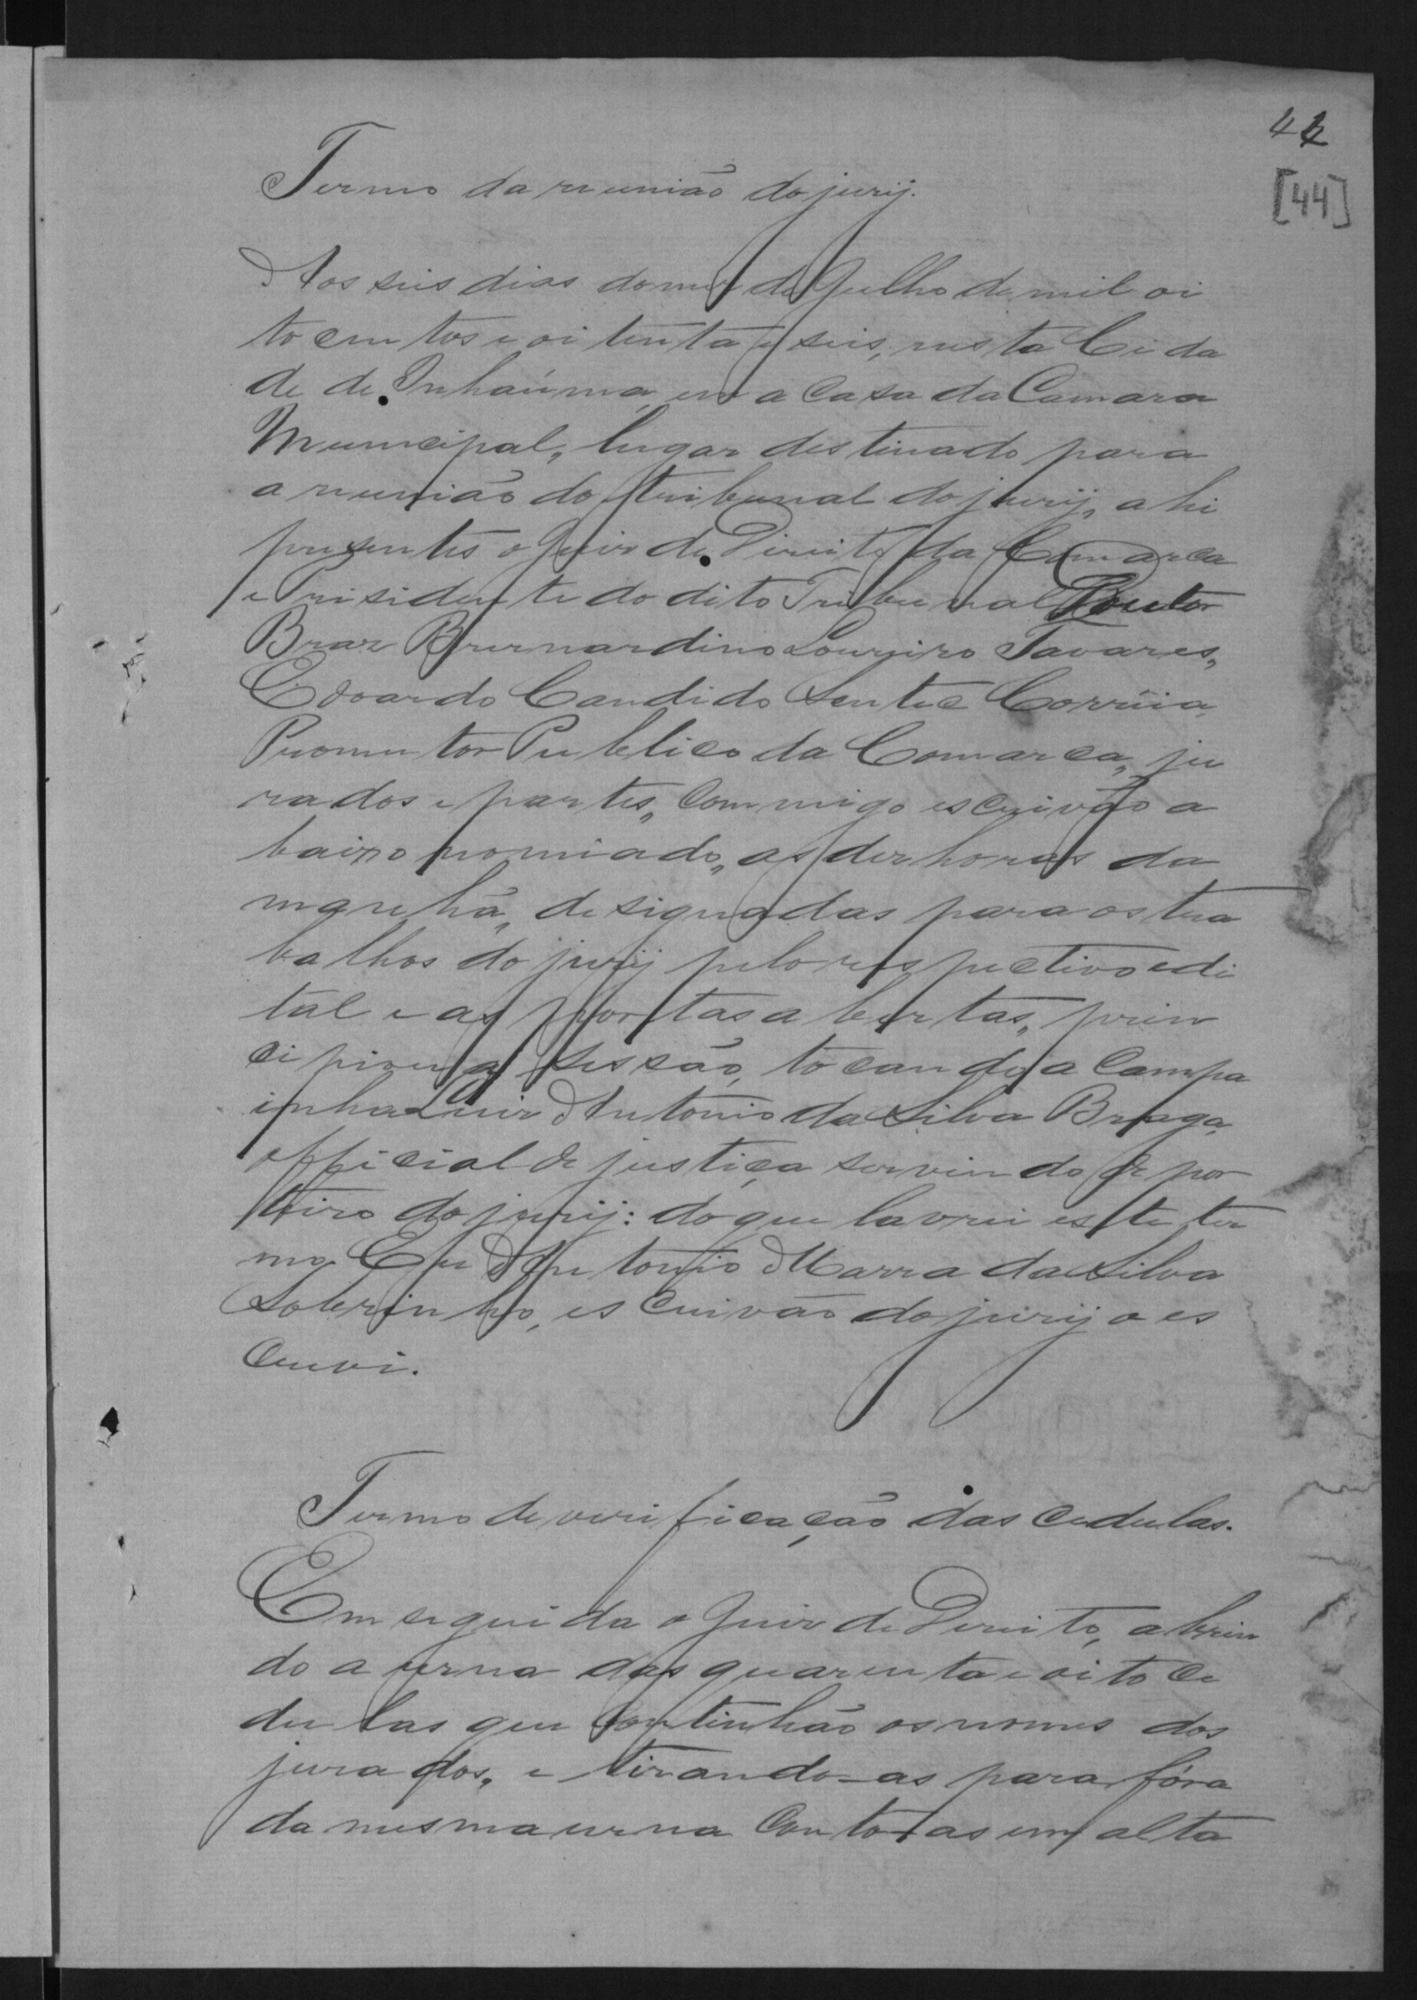 42
[44]
Termo da reunião do jury.
Aos seis dias do mes de Julho de mil oi
to centos e oi tenta e seis, nesta Cida
de de Inhaúma, em a Casa da Camara
Municipal, lugar destinado para
a reunião do tribunal do jury, ahi
presentes o Juiz de Direito da Comarca
e Prisidente do dito Tribunal Doutor
Braz Brernardino Loureiro Tavares,
Edoardo Candido Leute Corrêia
Promutor Publico da Comarca, ju
rados e partes, Commigo escrivão a
baixo nomiado, as dez horas da
manhã, designadas para os tra
balhos do jury pelo respectivo edi
tal e as portas abertas, prin
cipiou a sessão, tocando a Campa
inha Luiz Antonio da Silva Braga,
official de justiça servindo de por
teiro do jury: do que lavrei este ter
mo. Eu Antonio Marra da Silva
Sobrinho, escrivão do jury o es
crevi.
Termo de verificação das Cedulas.
Em seguida o Juiz de Direito, abrin
do a urna das quarenta e oito Ce
dulas que continhão os nomes dos
jurados, e tirando-as para fóra
da mesma urna Contou as em alta